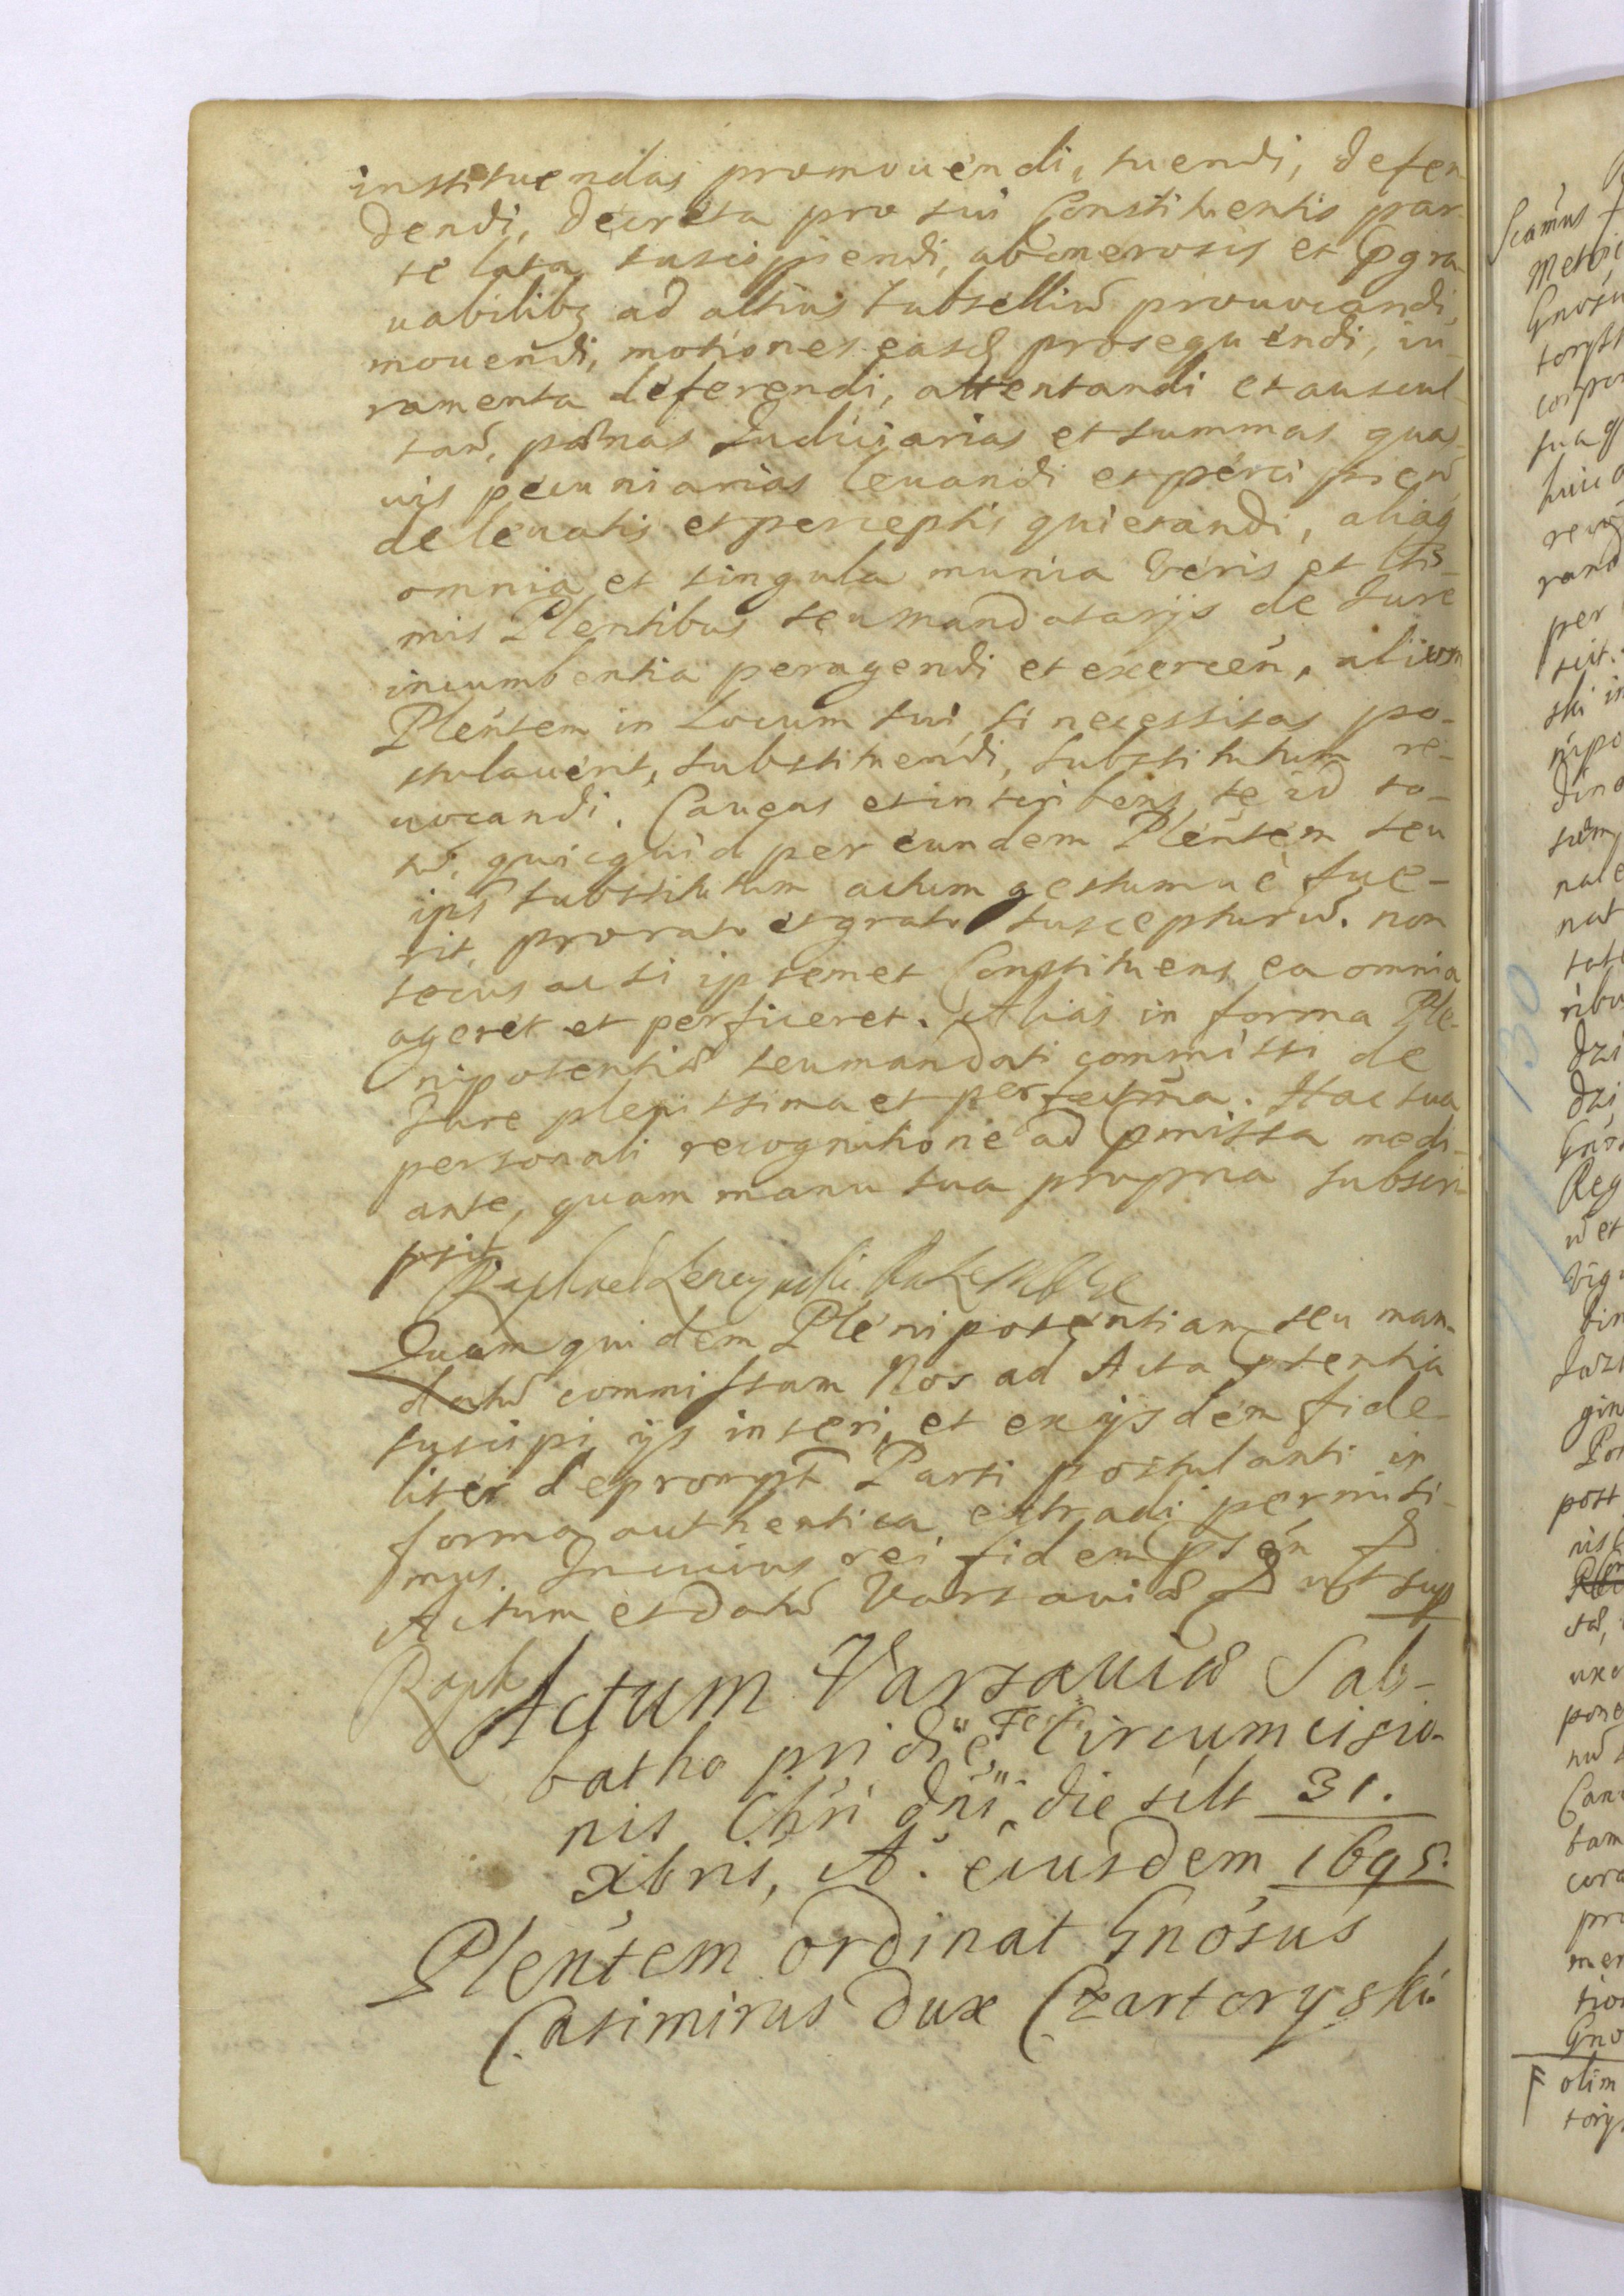 instituendas promouendi, tuendi, defen
dendi, Decreta pro sui Constituentis par
te lata suscipiendi, ab onerosis et pgra
uabilibq ad altius subselliũ prouocandi,
mouendi, motiones easq prosequendi, iu
ramenta deferendi, attentandi et auscul
tañ, pænas Judiciarias et summas quas
uis pecuniarias leuandi et percipieñ
de leuatis et perceptis quietandi, aliaq
omnia et singula munia veris et ltti
mis Plentibus seu mandatarijs de Jure
incumbentia peragendi et exerceñ, alium
Pleñtem in Locum sui, si necessitas po-
stulauerit, substituendi, substitutum re-
uocandi. Caueas et inscribens se id to-
tũ, quicquid per eundem Pleñtem seu
ips substitutum actum gestumue fue-
rit, pro rato et grato suscepturũ. non
secus ac si ipsemet Constituens ea omnia
ageret et perficeret. Alias in forma Ple-
nipotentiæ seu mandati commissi de
Jure plenissima et perfectma. Hac sua
personali recognitione ad pmissa medi-
ante, quam manu sua propria subscri-
psit.
Raphael
Quam quidem Plenipotentiam seu man-
datũ commissam Nos ad Acta pſentia
suscipi ijs inseri, et ex ijsdem fide-
liter depromptã Parti postulanti in
forma authentica extradi permisi-
mus. In cuius rei fidem pſeñ
Actum et datũ Varsauiæ ut sup
Raph
Actum Varsauiæ Sab-
batho pridie Festi Circumcisio-
nis Chri dñi, die scilt 31.
Xbris, A. eiusdem 1695.
Pleñtem ordinat Gnosus
Casimirus Dux Czartoryski
Scamus
Metric
Gnosu
toryts
corpor
sua
huic
recog
rand
per
scit.
ski in
nipo
dino
suem
nale
nat
ribus
130
dzi
dzi
Gnos
Reg
gin
post
pone
tam
cora
pro
men
tion
Gno
F olim
torys